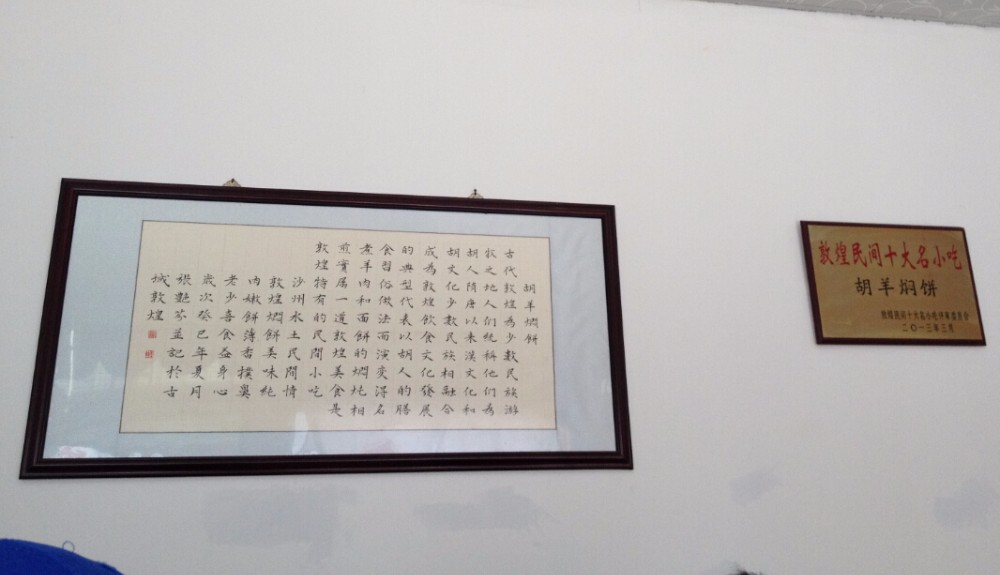 胡羊燜餅
古代敦煌為少數民族游
牧之地人们統稱他们為
胡人隋唐以来漢文化和
胡文化少數民族相融合
成為敦煌飲食文化發展
的典型代表以胡人的膳
食習俗做法而演变得名
煮羊肉和面餅的燜炖相
煎實属一道敦煌美食是
敦煌特有的民間小吃
沙州水土民間情
敦煌燜餅美味純
肉嫩餅薄香撲奥
老少喜食益身心
歲次癸巳年夏月
張艷芬並記於古
城敦煌
敦煌民间十大名小吃
胡羊焖饼
敦煌民间十大名小吃评审委员会
二〇一三年三月